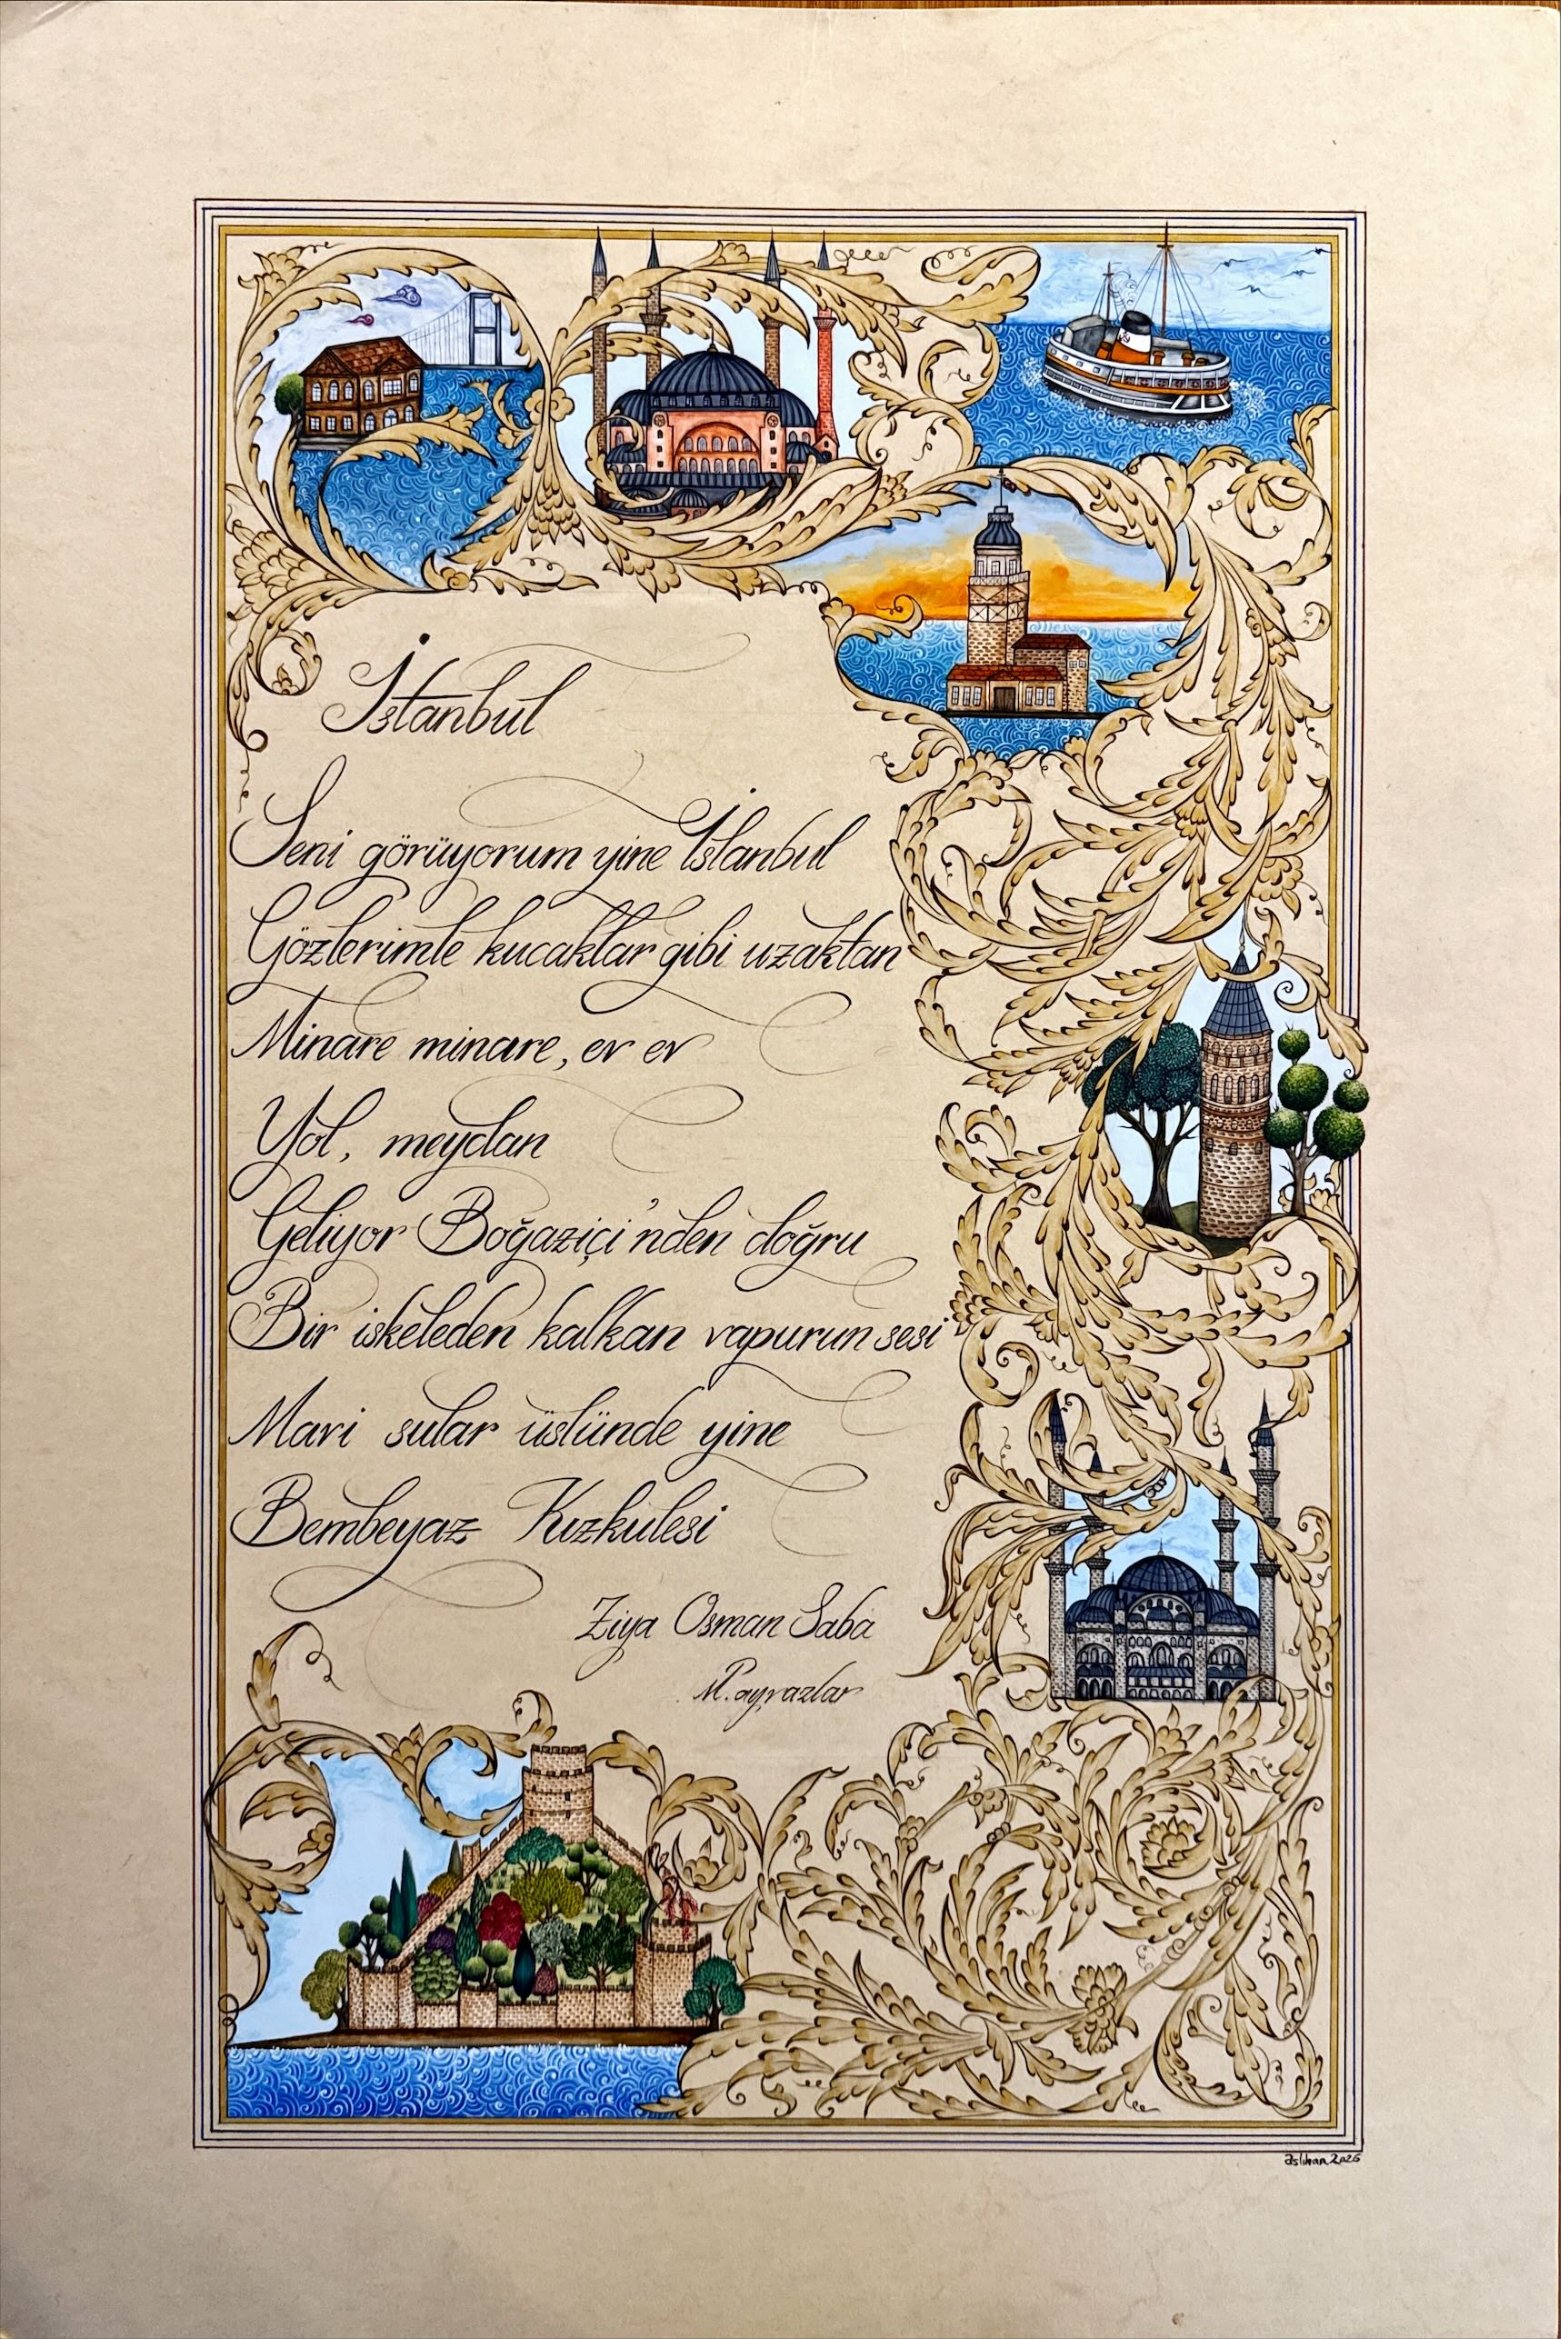 İstanbul
Seni görüyorum yine İstanbul
Gözlerimle kucaklar gibi uzaktan
Minare minare, ev ev
Yol, meydan
Geliyor Boğaziçi'nden doğru
Bir iskeleden kalkan vapurun sesi
Mavi sular üstünde yine
Bembeyaz Kızkulesi
Ziya Osman Saba
M. ayvazlar
aslıhan 2026